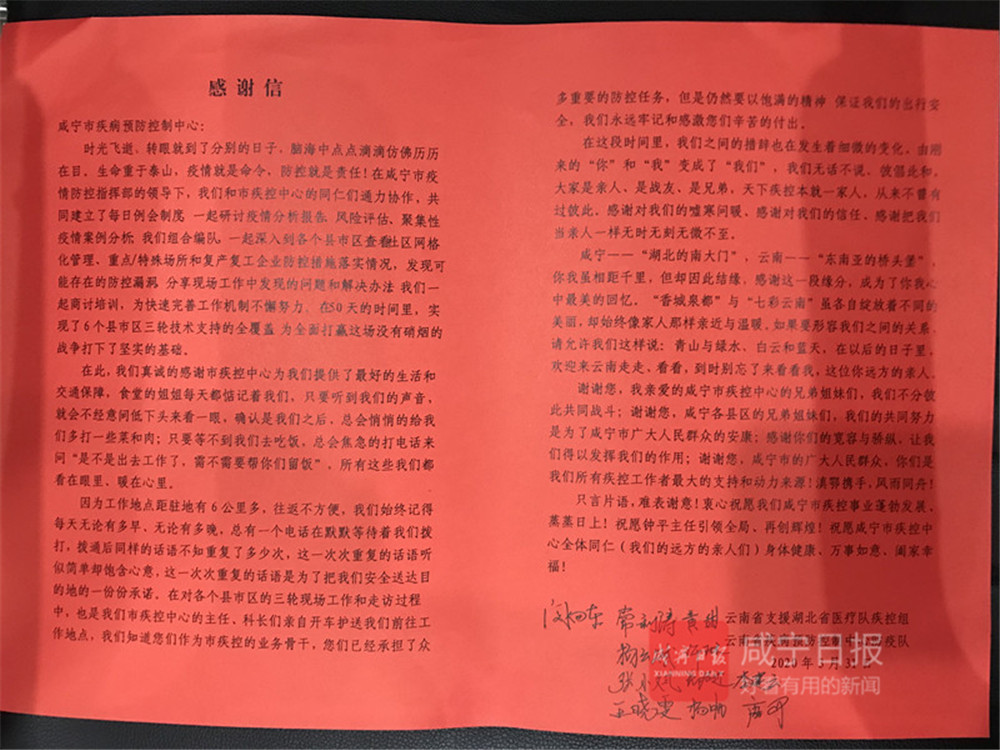 感谢信
咸宁市疾病预防控制中心：
时光飞逝，转眼就到了分别的日子，脑海中点点滴滴仿佛历历
在目。生命重于泰山，疫情就是命令，防控就是责任！在咸宁市疫
情防控指挥部的领导下，我们和市疾控中心的同仁们通力协作，共
同建立了每日例会制度，一起研讨疫情分析报告、风险评估、聚集性
疫情案例分析，我们组合编队，一起深入到各个县市区查看社区网格
化管理、重点/特殊场所和复产复工企业防控措施落实情况，发现可
能存在的防控漏洞，分享现场工作中发现的问题和解决办法，我们一
起商讨培训，为快速完善工作机制不懈努力。在50天的时间里，实
现了6个县市区三轮技术支持的全覆盖，为全面打赢这场没有硝烟的
战争打下了坚实的基础。
在此，我们真诚的感谢市疾控中心为我们提供了最好的生活和
交通保障，食堂的姐姐每天都惦记着我们，只要听到我们的声音，
就会不经意间低下头来看一眼，确认是我们之后，总会悄悄的给我
们多打一些菜和肉；只要等不到我们去吃饭，总会焦急的打电话来
问“是不是出去工作了，需不需要帮你们留饭”，所有这些我们都
看在眼里，暖在心里。
因为工作地点距驻地有6公里多，往返不方便，我们始终记得
每天无论有多早、无论有多晚，总有一个电话在默默等待着我们拨
打，拨通后同样的话语不知重复了多少次，这一次次重复的话语听
似简单却饱含心意，这一次次重复的话语是为了把我们安全送达目
的地的一份份承诺。在对各个县市区的三轮现场工作和走访过程
中，也是我们市疾控中心的主任、科长们亲自开车护送我们前往工
作地点，我们知道您们作为市疾控的业务骨干，您们已经承担了众
多重要的防控任务，但是仍然要以饱满的精神 保证我们的出行安
全，我们永远牢记和感激您们辛苦的付出。
在这段时间里，我们之间的措辞也在发生着细微的变化。由刚
来的“你”和“我”变成了“我们”，我们无话不说，彼倡此和。
大家是亲人、是战友、是兄弟，天下疾控本就一家人，从来不曾有
过彼此。感谢对我们的嘘寒问暖、感谢对我们的信任、感谢把我们
当亲人一样无时无刻无微不至。
咸宁——“湖北的南大门”，云南——“东南亚的桥头堡”，
你我虽相距千里，但却因此结缘，感谢这一段缘分，成为了你我心
中最美的回忆。“香城泉都”与“七彩云南”虽各自绽放着不同的
美丽，却始终像家人那样亲近与温暖。如果要形容我们之间的关系，
请允许我们这样说：青山与绿水、白云和蓝天，在以后的日子里，
欢迎来云南走走，看看，到时别忘了来看看我，这位你远方的亲人。
谢谢您，我亲爱的咸宁市疾控中心的兄弟姐妹们，我们不分彼
此共同战斗；谢谢您，咸宁各县区的兄弟姐妹们，我们的共同努力
是为了咸宁市广大人民群众的安康；感谢你们的宽容与骄纵，让我
们得以发挥我们的作用；谢谢您，咸宁市的广大人民群众，你们是
我们所有疾控工作者最大的支持和动力来源！滇鄂携手，风雨同舟！
只言片语，难表谢意！衷心祝愿我们咸宁市疾控事业蓬勃发展，
蒸蒸日上！祝愿钟平主任引领全局、再创辉煌！祝愿咸宁市疾控中
心全体同仁（我们的远方的亲人们）身体健康、万事如意、阖家幸
福！
云南省支援湖北省医疗队疾控组
2020年3月
王晓雯
咸宁日报
XIANNING DAILY
咸宁日报
好看有用的新闻